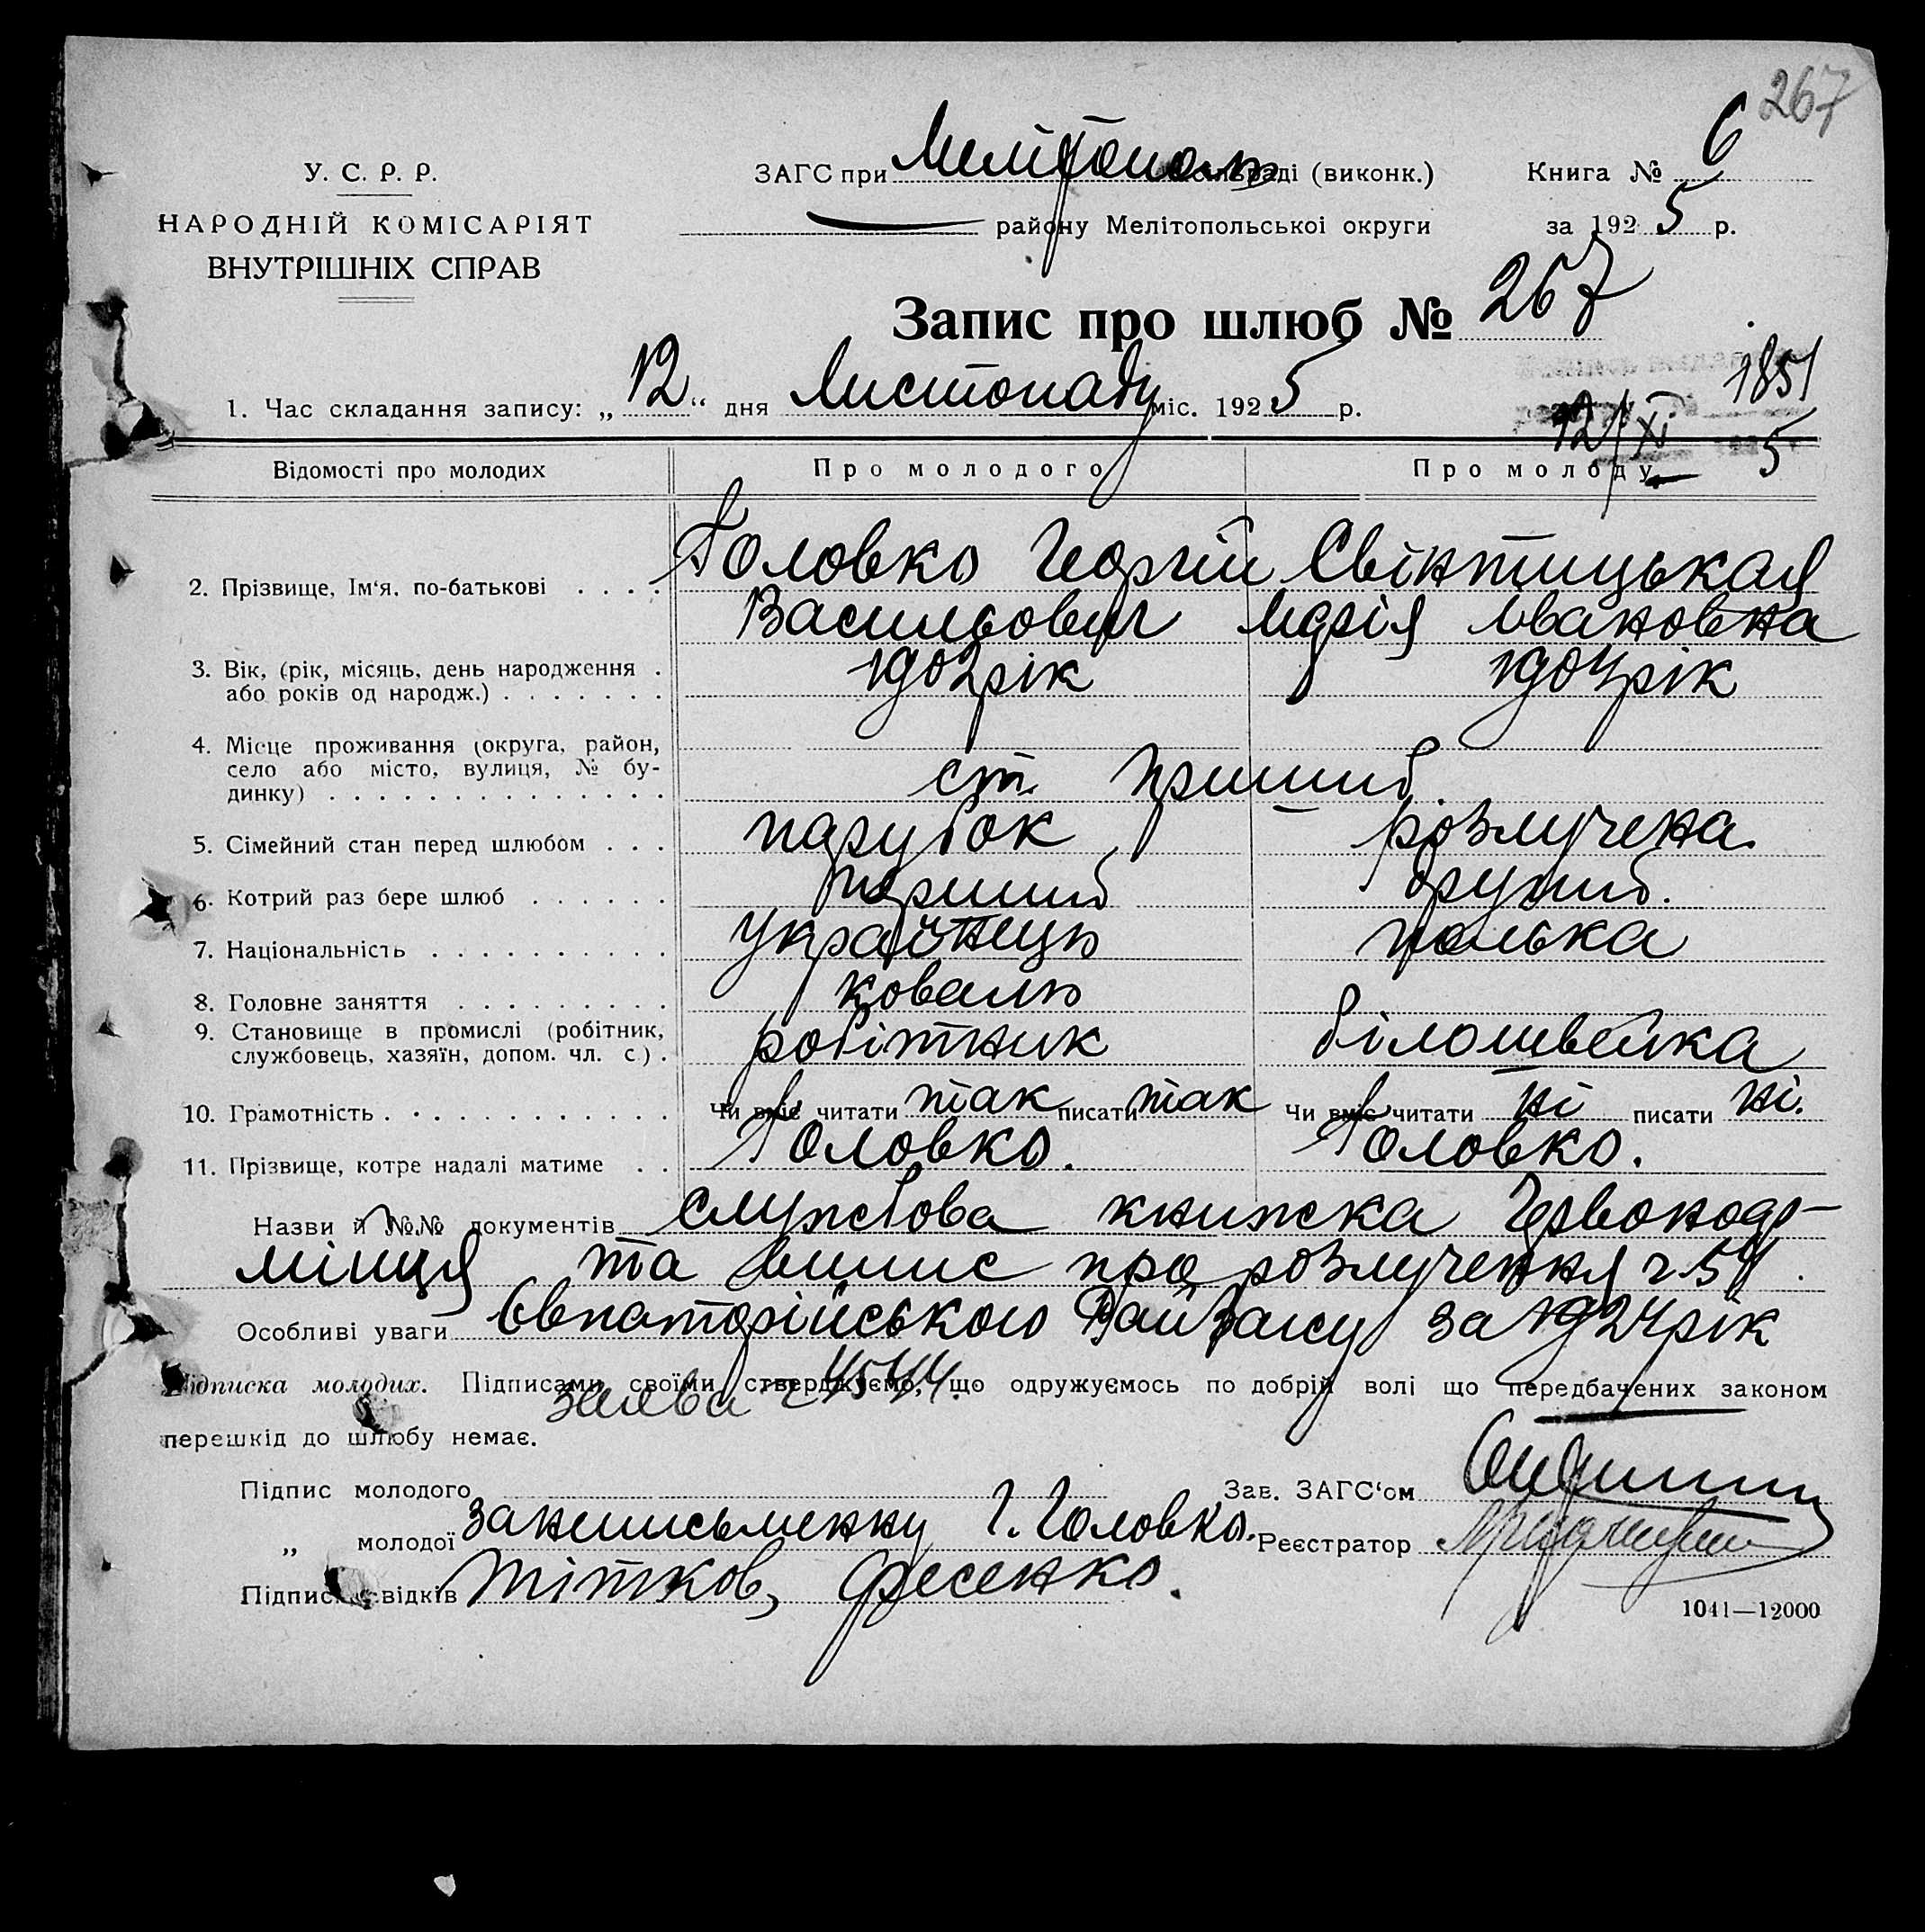 267
У. С. Р. Р.
НАРОДНІЙ КОМІСАРІЯТ
ВНУТРІШНІХ СПРАВ
ЗАГС при Мелітополь сільраді (виконк.)
району Мелітопольськоі округи
Книга № 6
за 1925 р.
Запис про шлюб № 267
1. Час складання запису: „12" дня Листопаду міс. 1925 р.
1851
12/XI 5
Відомості про молодих Про молодого Про молоду
2. Прізвище, Ім'я, по-батькові . . . . Головко Георгій Свінтицькая
Васильович Марія Івановна
3. Вік, (рік, місяць, день народження . 1902 рік 1904 рік
або років од народж.) . . . . . . .
4. Місце проживання (округа, район,
село або місто, вулиця, № бу- ст. Пришиб.
динку) . . . . . . . . . . . . . .
5. Сімейний стан перед шлюбом . . . парубок розлучена.
6. Котрий раз бере шлюб . . . . . . перший другий.
7. Національність . . . . . . . . . . українець полька
8. Головне заняття . . . . . . . . . коваль
9. Становище в промислі (робітник, робітник білошвейка
службовець, хазяїн, допом. чл. с.) .
10. Грамотність . . . . . . . . . . . . Чи вміє читати так писати так Чи вміє читати ні писати ні.
11. Прізвище, котре надалі матиме . . Головко. Головко.
Назви й №№ документів Службова книжка Червоноар-
мійця та випис про розлучення ч. 54.
Особливі уваги Євпаторійського за 1924 рік
заява ч 4544.
Підписка молодих. Підписами своїми стверджуємо, що одружуємось по добрій волі що передбачених законом
перешкід до шлюбу немає.
Підпис молодого
Зав. ЗАГС'ом
„ молодої за неписьменну Г. Головко.
Реєстратор
Підписи свідків Тітков, Фесенко.
1041—12000